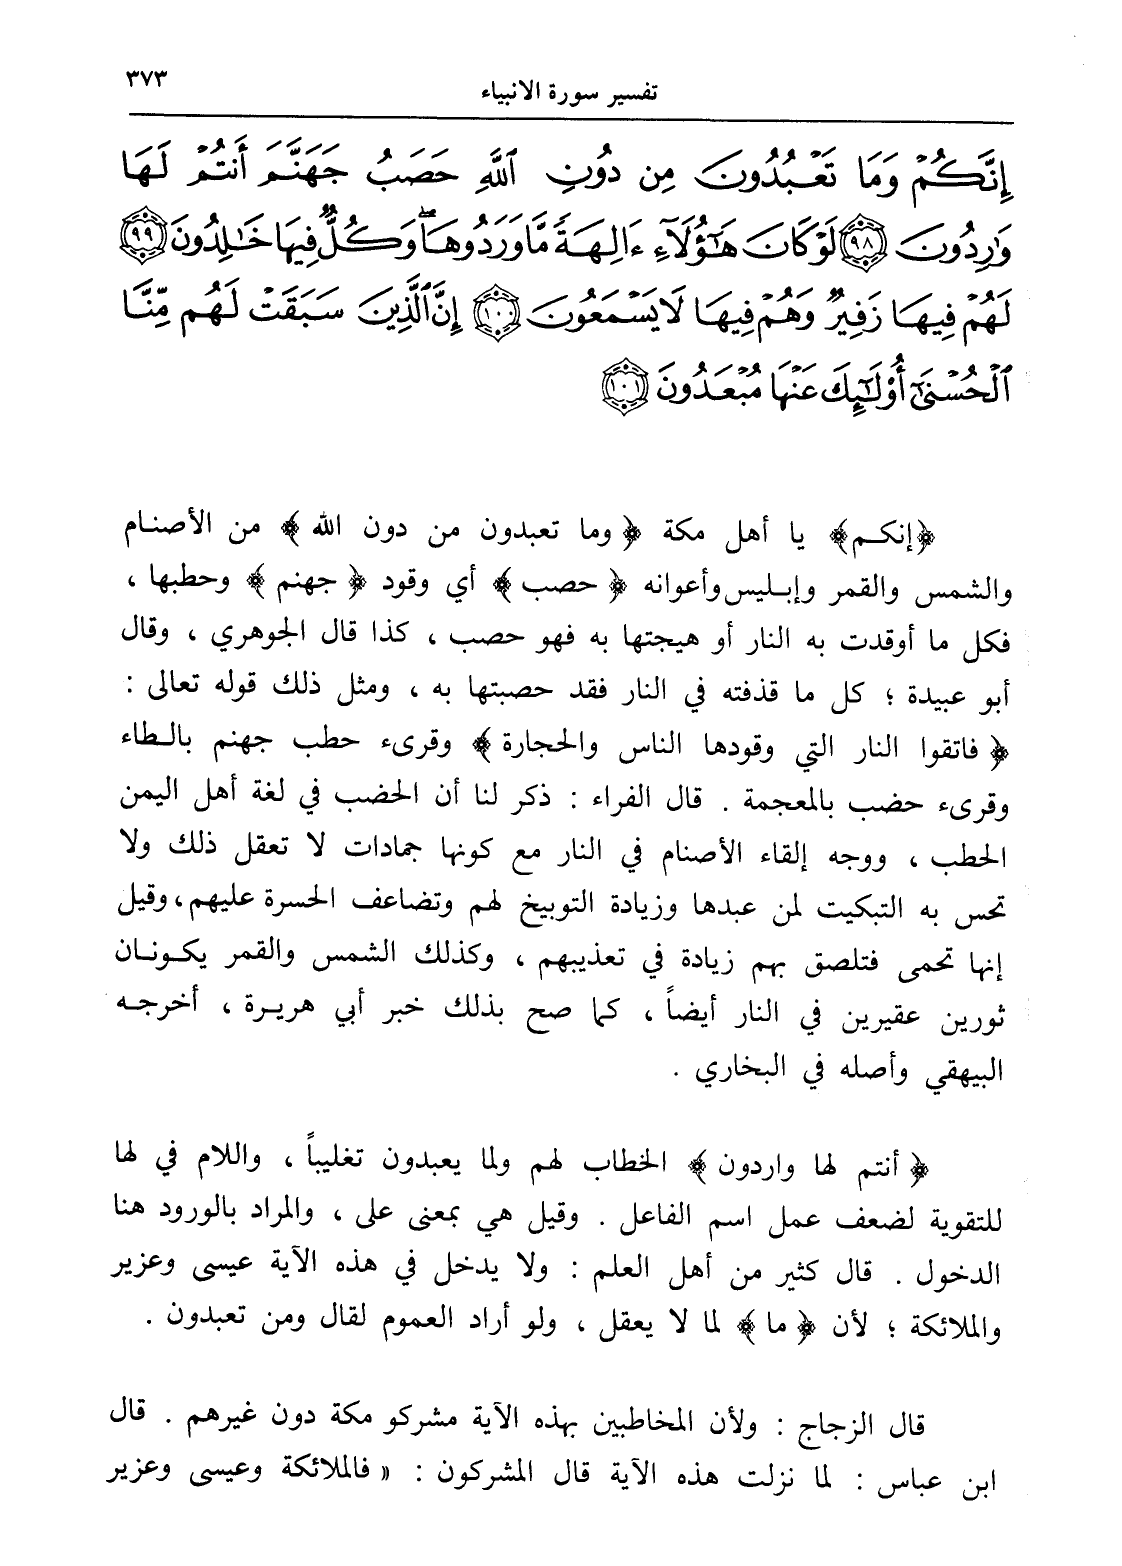 تفسير سورة الانبياء ٣٧٣
إِنَّكُمْ وَمَا تَعْبُدُونَ مِن دُونِ ٱللَّهِ حَصَبُ جَهَنَّمَ أَنتُمْ لَهَا
وَٰرِدُونَ ٩٨ لَوْ كَانَ هَٰٓؤُلَآءِ ءَالِهَةً مَّا وَرَدُوهَا ۖ وَكُلٌّ فِيهَا خَٰلِدُونَ ٩٩
لَهُمْ فِيهَا زَفِيرٌ وَهُمْ فِيهَا لَا يَسْمَعُونَ ١٠٠ إِنَّ ٱلَّذِينَ سَبَقَتْ لَهُم مِّنَّا
ٱلْحُسْنَىٰٓ أُو۟لَٰٓئِكَ عَنْهَا مُبْعَدُونَ ١٠١
﴿إنكم﴾ يا أهل مكة ﴿وما تعبدون من دون الله﴾ من الأصنام
والشمس والقمر وإبليس وأعوانه ﴿حصب﴾ أي وقود ﴿جهنم﴾ وحطبها ،
فكل ما أوقدت به النار أو هيجتها به فهو حصب ، كذا قال الجوهري ، وقال
أبو عبيدة ؛ كل ما قذفته في النار فقد حصبتها به ، ومثل ذلك قوله تعالى :
﴿فاتقوا النار التي وقودها الناس والحجارة﴾ وقرىء حطب جهنم بالطاء
وقرىء حضب بالمعجمة . قال الفراء : ذكر لنا أن الحضب في لغة أهل اليمن
الحطب ، ووجه إلقاء الأصنام في النار مع كونها جمادات لا تعقل ذلك ولا
تحس به التبكيت لمن عبدها وزيادة التوبيخ لهم وتضاعف الحسرة عليهم ، وقيل
إنها تحمى فتلصق بهم زيادة في تعذيبهم ، وكذلك الشمس والقمر يكونان
ثورين عقيرين في النار أيضاً ، كما صح بذلك خبر أبي هريرة ، أخرجه
البيهقي وأصله في البخاري .
﴿أنتم لها واردون﴾ الخطاب لهم ولما يعبدون تغليباً ، واللام في لها
للتقوية لضعف عمل اسم الفاعل . وقيل هي بمعنى على ، والمراد بالورود هنا
الدخول . قال كثير من أهل العلم : ولا يدخل في هذه الآية عيسى وعزير
والملائكة ؛ لأن ﴿ما﴾ لما لا يعقل ، ولو أراد العموم لقال ومن تعبدون .
قال الزجاج : ولأن المخاطبين بهذه الآية مشركو مكة دون غيرهم . قال
ابن عباس : لما نزلت هذه الآية قال المشركون : « فالملائكة وعيسى وعزير